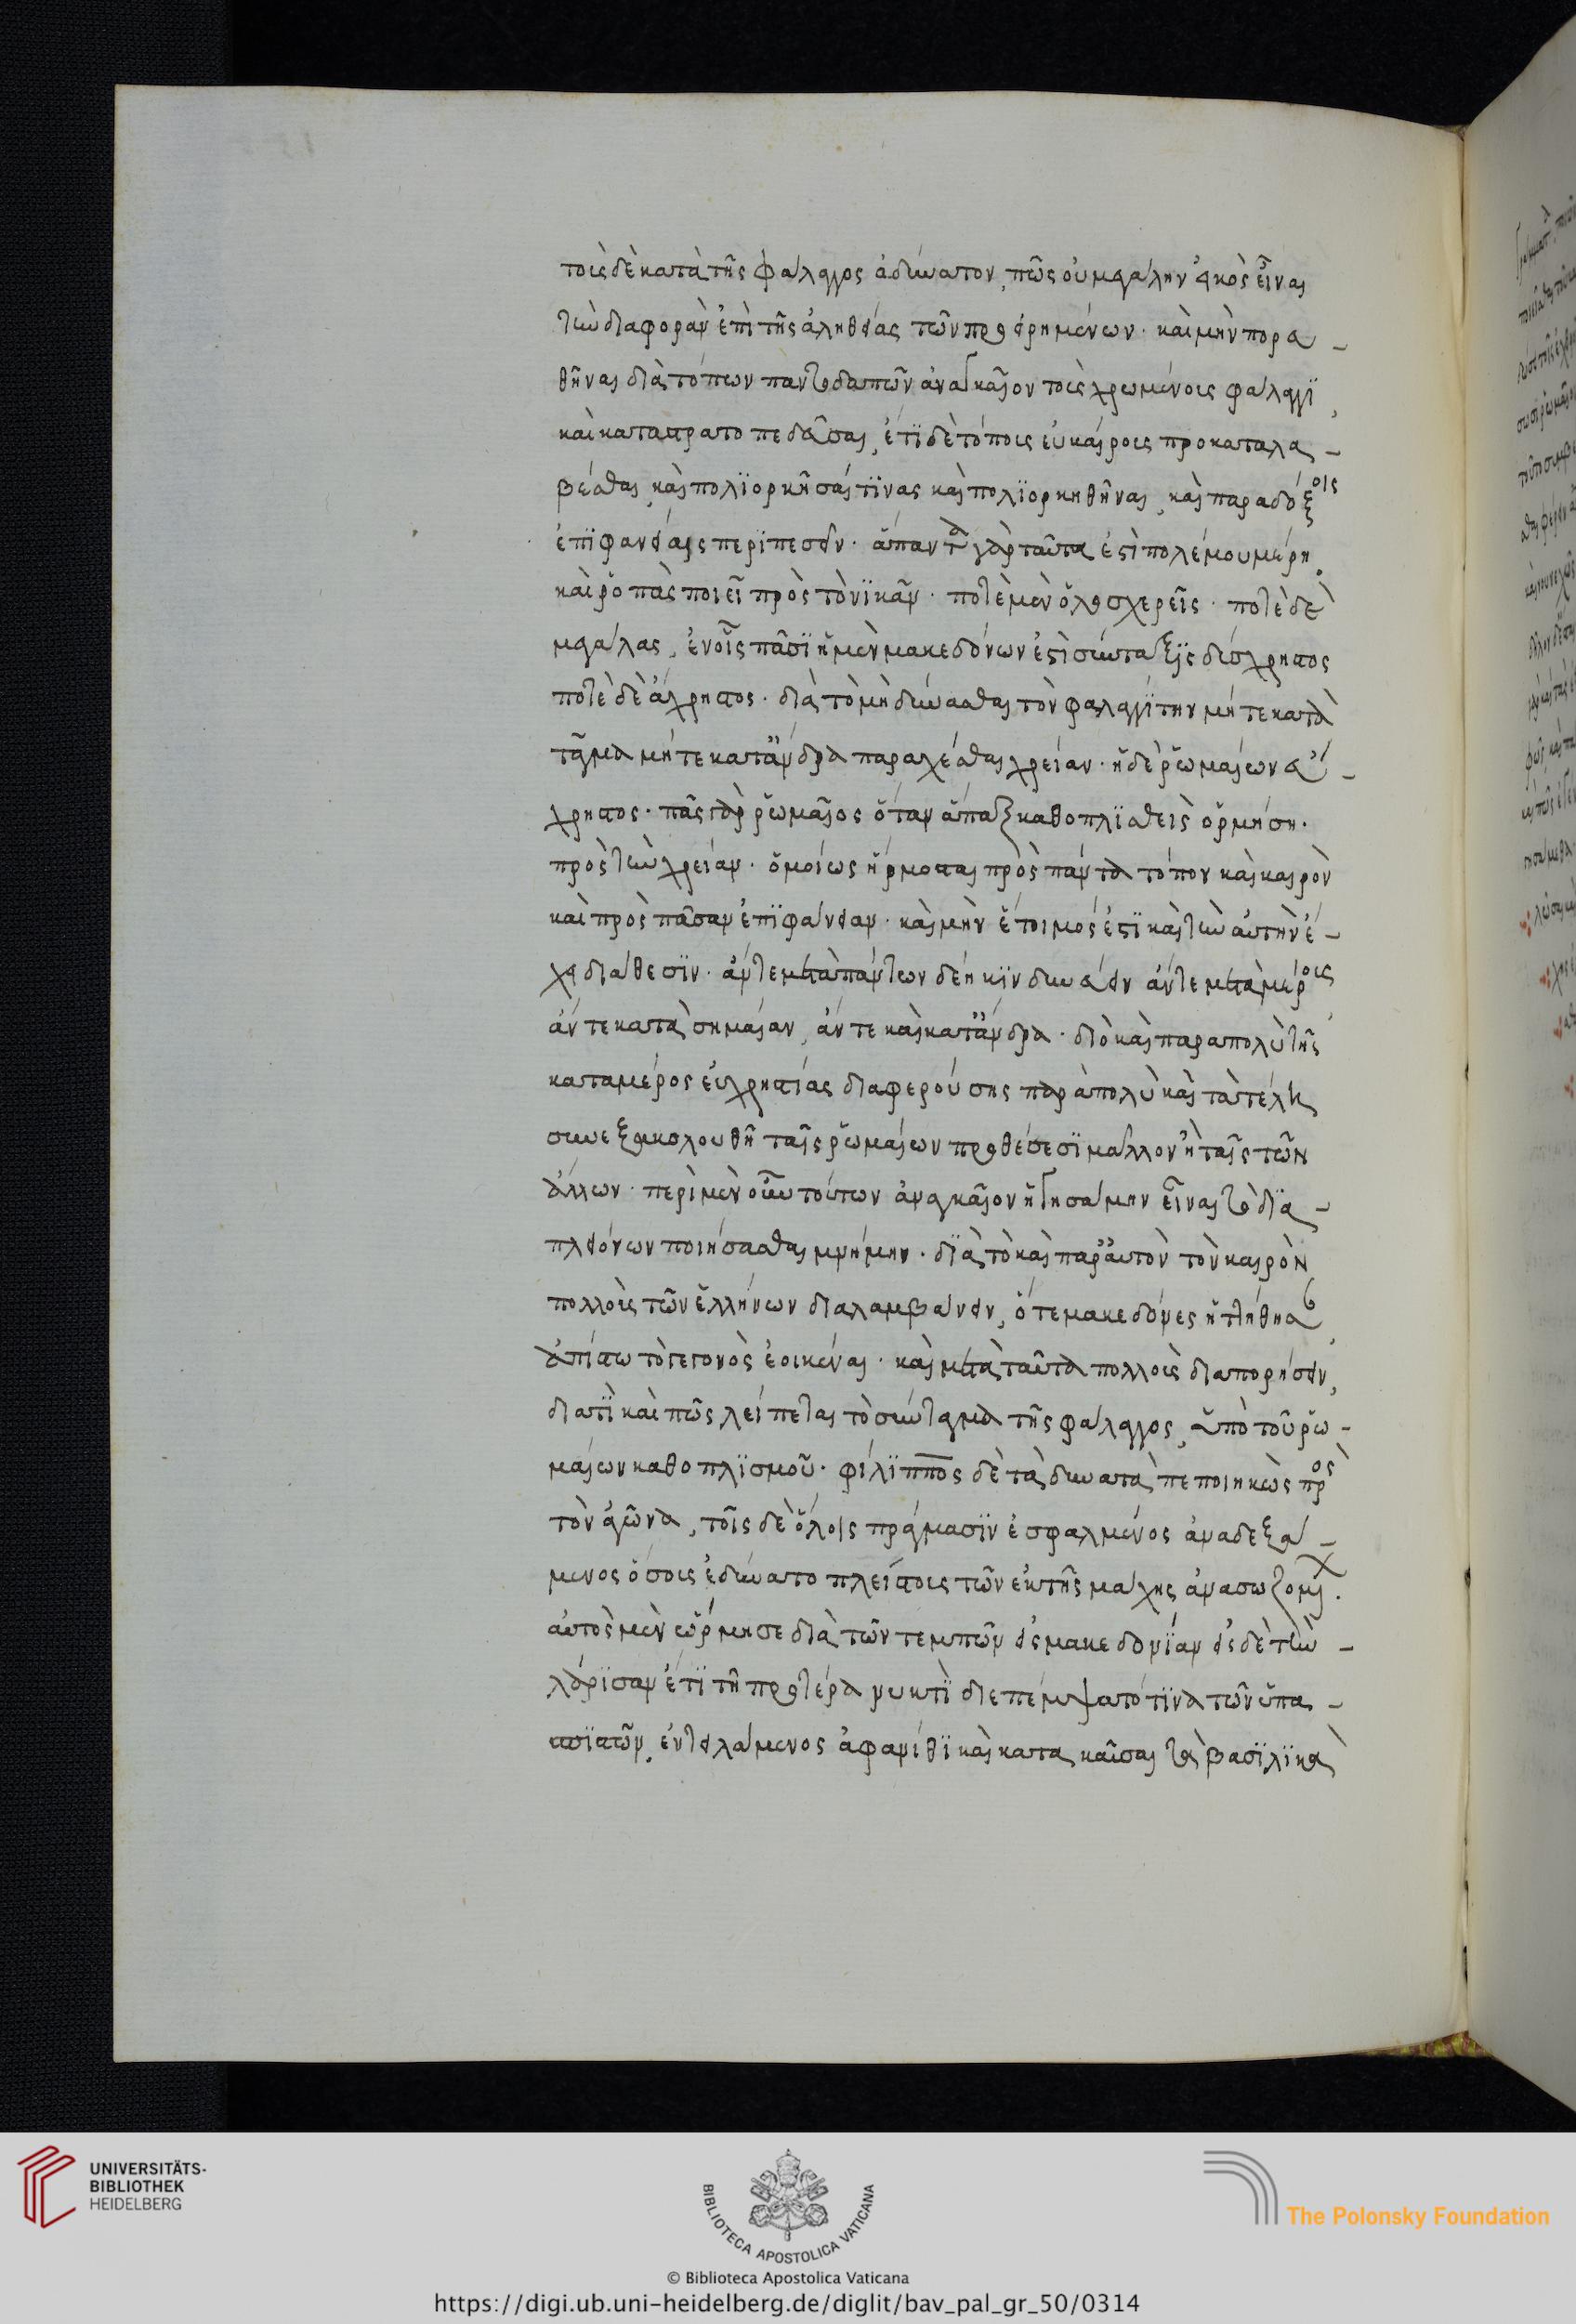 τοῖς δὲ κατὰ τῆς φάλαγγος ἀδύνατον, πῶς οὐ μεγάλην εἰκὸς εἶναι
τὴν διαφορὰν ἐπὶ τῆς ἀληθείας τῶν προειρημένων· καὶ μὴν πορευ-
θῆναι διὰ τόπων παντοδαπῶν ἀναγκαῖον τοῖς χρωμένοις φάλαγγι,
καὶ καταστρατοπεδεῦσαι, ἔτι δὲ τόπους εὐκαίρους προκαταλα-
βέσθαι, καὶ πολιορκῆσαί τινας καὶ πολιορκηθῆναι, καὶ παραδόξοις
ἐπιφανείαις περιπεσεῖν· ἅπαντα γὰρ ταῦτα ἐστὶ πολέμου μέρη
καὶ ῥοπὰς ποιεῖ πρὸς τὸ νικᾶν· ποτὲ μὲν ὁλοσχερεῖς· ποτὲ δὲ
μεγάλας, ἐν οἷς πᾶσιν ἡ μὲν μακεδόνων ἐστὶ σύνταξις δύσχρηστος
ποτὲ δὲ ἄχρηστος· διὰ τὸ μὴ δύνασθαι τὸν φαλαγγίτην μήτε κατὰ
τάγμα μήτε κατ' ἄνδρα παρασχέσθαι χρείαν· ἡ δὲ ῥωμαίων εὔ-
χρηστος· πᾶς γὰρ ῥωμαῖος ὅταν ἅπαξ καθοπλισθεὶς ὁρμήσῃ·
πρὸς τὴν χρείαν· ὁμοίως ἥρμοσται πρὸς πάντα τόπον καὶ καιρὸν
καὶ πρὸς πᾶσαν ἐπιφάνειαν· καὶ μὴν ἕτοιμός ἐστι καὶ τὴν αὐτὴν ἔ-
χει διάθεσιν· ἄν τε μετὰ πάντων δέῃ κινδυνεύειν ἄν τε μετὰ μέρους
ἄν τε κατὰ σημαίαν, ἄν τε καὶ κατ' ἄνδρα· διὸ καὶ παρὰ πολὺ τῆς
κατὰ μέρος εὐχρηστίας διαφερούσης παρὰ πολὺ καὶ τὰ τέλη
συνεξακολουθεῖ ταῖς ῥωμαίων προθέσεσι μᾶλλον ἢ ταῖς τῶν
ἄλλων· περὶ μὲν οὖν τούτων ἀναγκαῖον ἡγησάμην εἶναι τὸ διὰ
πλειόνων ποιήσασθαι μνήμην· διὰ τὸ καὶ παρ' αὐτὸν τὸν καιρὸν
πολλοὺς τῶν ἑλλήνων διαλαμβάνειν, ὅτε μακεδόνες ἡττήθησαν,
ἀπίστῳ τὸ γεγονὸς ἐοικέναι· καὶ μετὰ ταῦτα πολλοὺς διαπορήσειν,
διὰ τί καὶ πῶς λείπεται τὸ σύνταγμα τῆς φάλαγγος, ὑπὸ τοῦ ῥω-
μαίων καθοπλισμοῦ· φίλιππος δὲ τὰ δυνατὰ πεποιηκὼς πρὸς
τὸν ἀγῶνα, τοῖς δὲ ὅλοις πράγμασιν ἐσφαλμένος ἀναδεξά-
μενος ὅσους ἐδύνατο πλείστους τῶν ἐκ τῆς μάχης ἀνασωζομένων.
αὐτὸς μὲν ὥρμησε διὰ τῶν τεμπῶν εἰς μακεδονίαν εἰς δὲ τὴν
λάρισαν ἔτι τῇ προτέρᾳ νυκτὶ διεπέμψατό τινα τῶν ὑπα-
σπιστῶν, ἐντειλάμενος ἀφανίσαι καὶ κατακαῦσαι τὰ βασιλικὰ
UNIVERSITÄTS-
BIBLIOTHEK
HEIDELBERG
BIBLIOTECA APOSTOLICA VATICANA
The Polonsky Foundation
© Biblioteca Apostolica Vaticana
https://digi.ub.uni-heidelberg.de/diglit/bav_pal_gr_50/0314